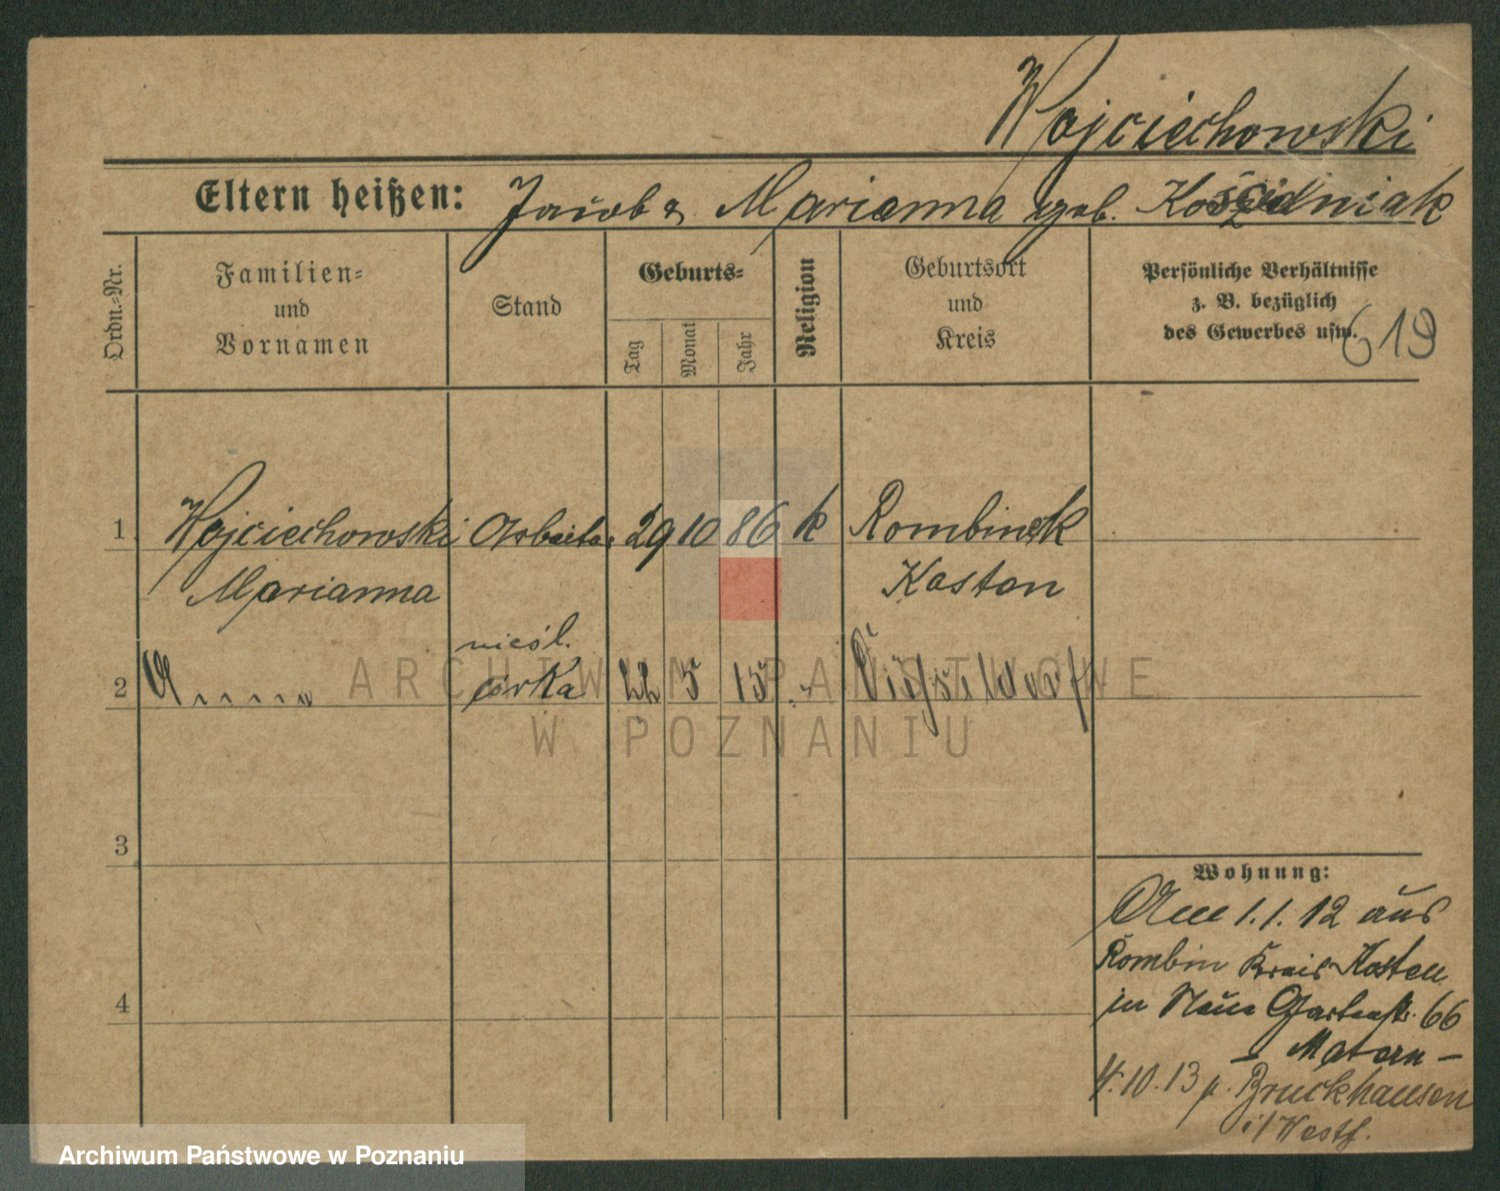 Wojciechowski
Eltern heißen: Jacob & Marianna geb.
Ordn.-Nr.
Familien-
und
Vornamen
Stand
Geburts-
Tag
Monat
Jahr
Religion
Geburtsort
und
Kreis
Persönliche Verhältnisse
z. B. bezüglich
des Gewerbes usw.
619
1 Wojciechowski Arbeiter 29 10 86 k Rombinek
Marianna Kosten
nieśl.
2 córka 22 5 15
ARCHIWUM PAŃSTWOWE
W POZNANIU
3
4
Wohnung:
Am 1.1.12 aus
Rombin Kreis Kosten
in Neue Gartenstr. 66
- Matern -
4.10.13 p. Bruckhausen
i/Westf.
Archiwum Państwowe w Poznaniu